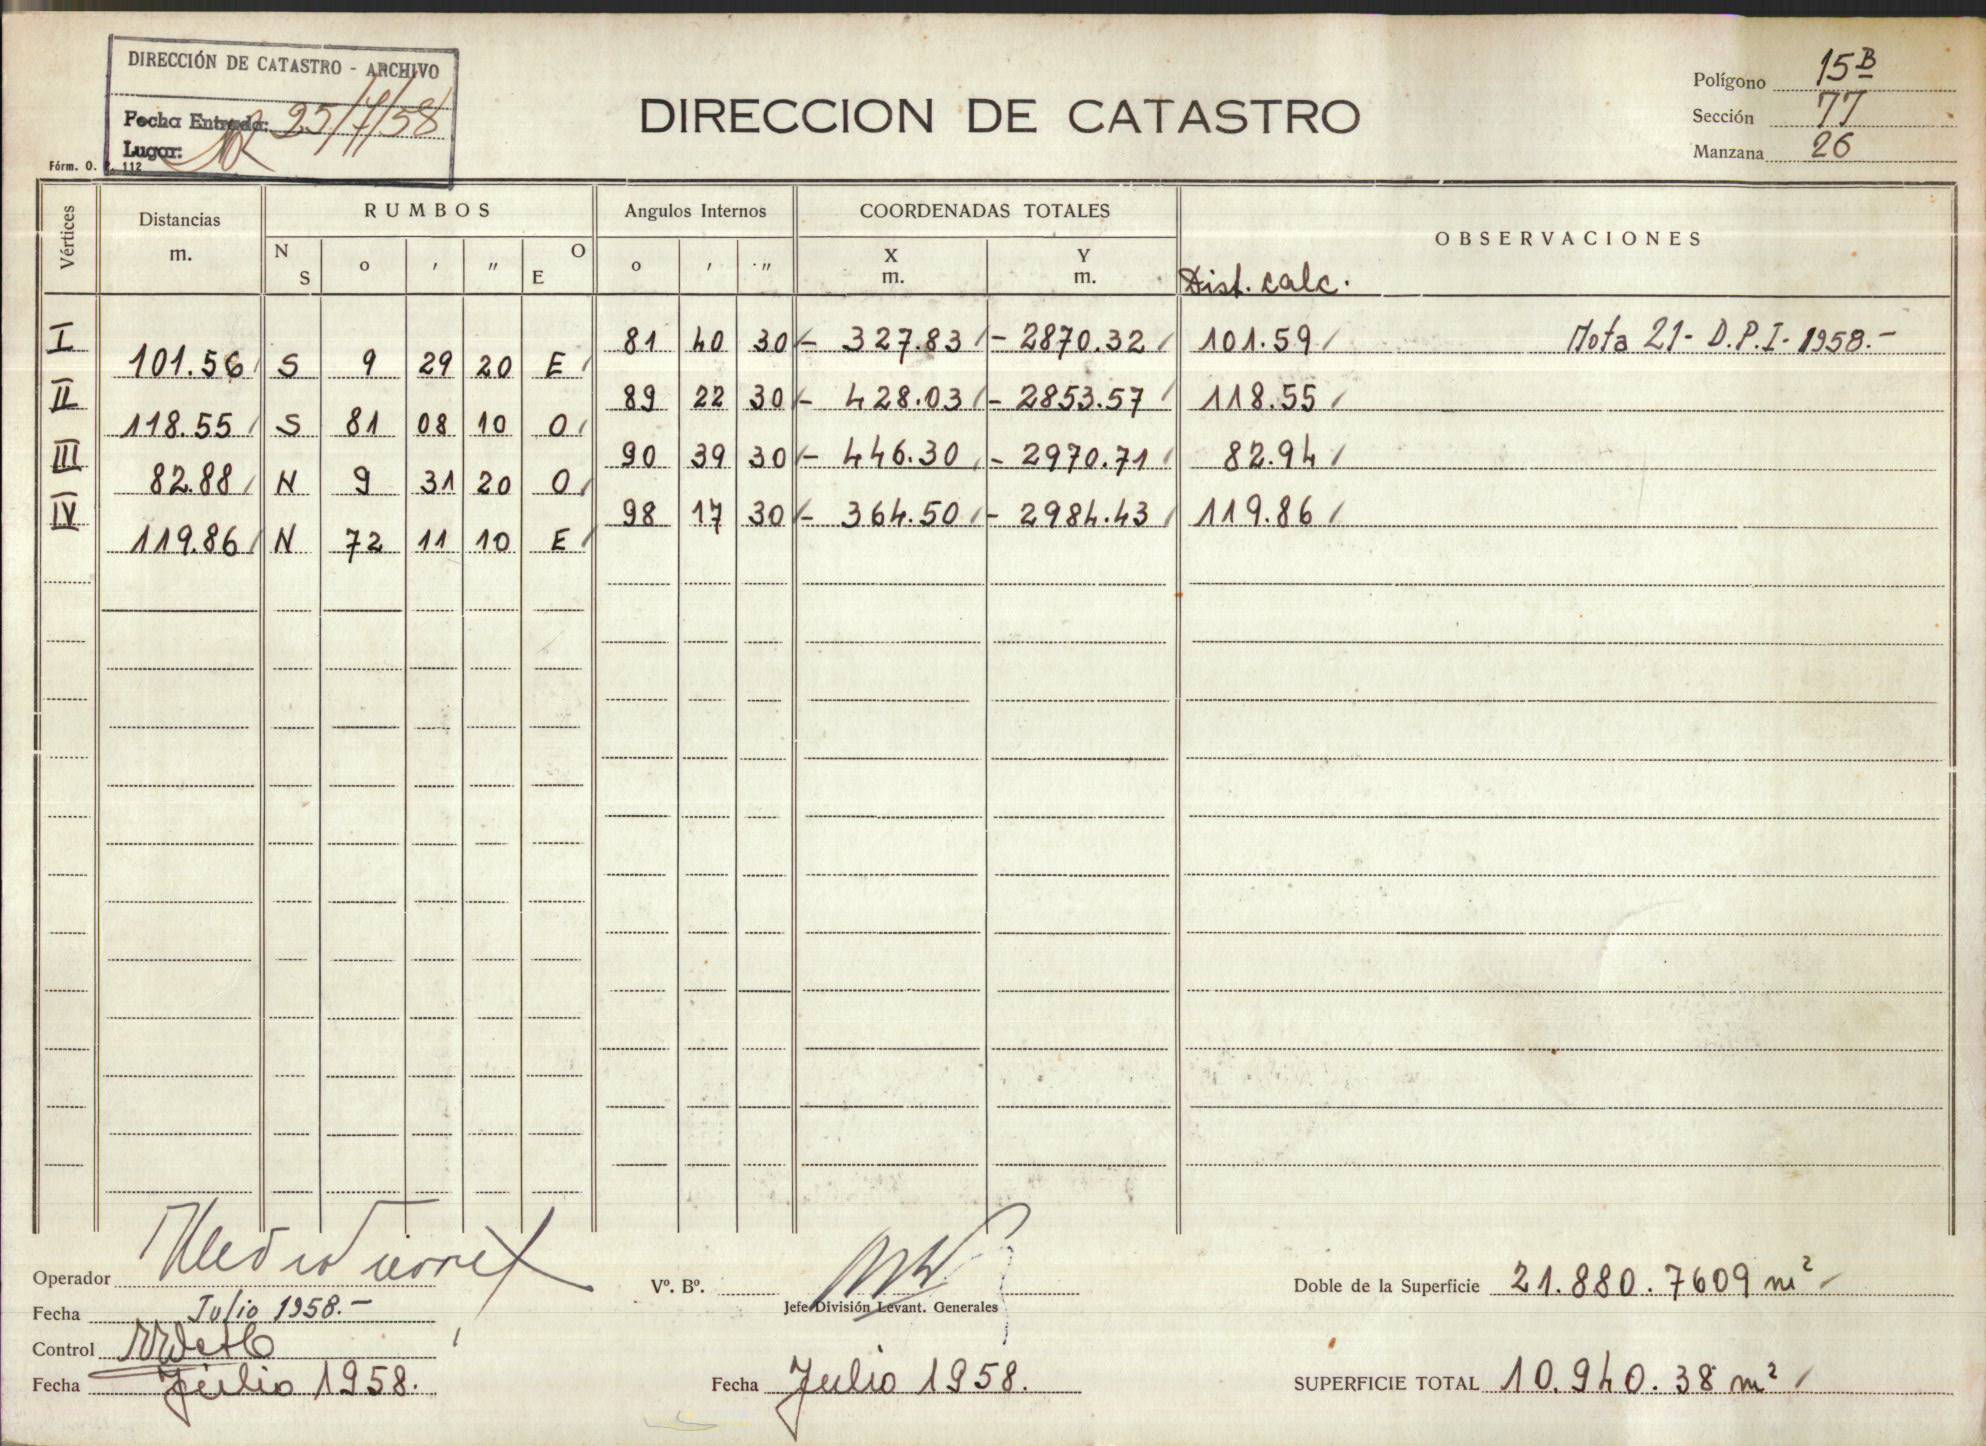 DIRECCIÓN DE CATASTRO - ARCHIVO
Fecha Entrada: 25/7/58
Lugar:
Fórm. O. P. 112
DIRECCION DE CATASTRO
Polígono 15 B
Sección 77
Manzana 26
Vértices Distancias m. RUMBOS N S o ′ ″ O E Angulos Internos o ′ ″ COORDENADAS TOTALES X m. Y m. OBSERVACIONES
Dist. calc.
I 81 40 30 - 327.83 - 2870.32 101.59 Nota 21- D.P.I- 1958.-
101.56 S 9 29 20 E
II 89 22 30 - 428.03 - 2853.57 118.55
118.55 S 81 08 10 O
III 90 39 30 - 446.30 - 2970.71 82.94
82.88 N 9 31 20 O
IV 98 17 30 - 364.50 - 2984.43 119.86
119.86 N 72 11 10 E
Operador
Fecha Julio 1958.-
Control
Fecha Julio 1958.
Vº. Bº.
Jefe División Levant. Generales
Fecha Julio 1958.
Doble de la Superficie 21.880.7609 m²
SUPERFICIE TOTAL 10.940.38 m²